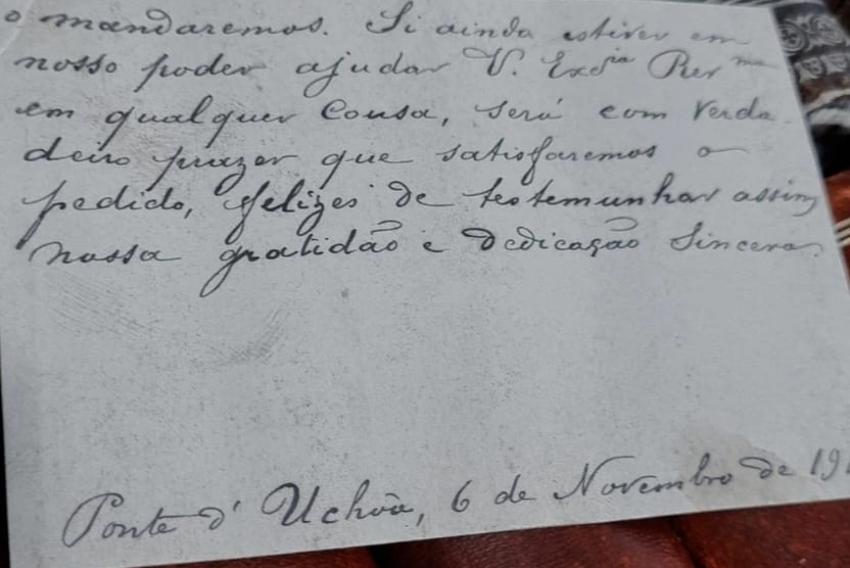 o mandaremos. Si ainda estiver em
nosso poder ajudar V. Excia Revma
em qualquer cousa, será com verda-
deiro prazer que satisfaremos o
pedido, felizes de testemunhar assim
nossa gratidão e dedicação sincera.
Ponte d' Uchôa, 6 de Novembro de 19